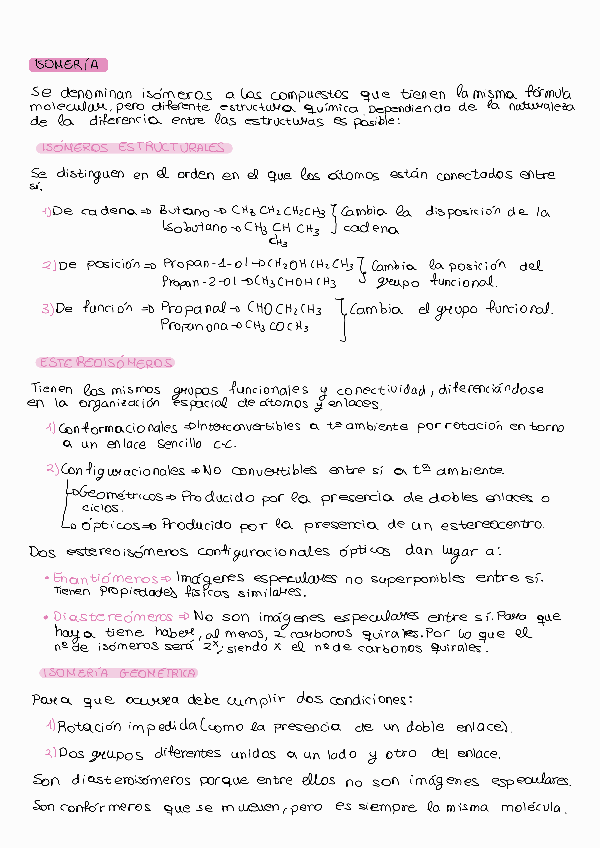 ISOMERÍA
Se denominan isómeros a los compuestos que tienen la misma fórmula
molecular, pero diferente estructura química Dependiendo de la naturaleza
de la diferencia entre las estructuras es posible:
ISÓMEROS ESTRUCTURALES
Se distinguen en el orden en el que los átomos están conectados entre
sí.
1) De cadena ⇒ Butano → CH3 CH2 CH2 CH3 } Cambia la disposición de la
Isobutano → CH3 CH CH3 } cadena
CH3
2) De posición ⇒ Propan-1-ol → CH2OH CH2 CH3 } Cambia la posición del
Propan-2-ol → CH3 CHOH CH3 } grupo funcional.
3) De función ⇒ Propanal → CHO CH2 CH3 } Cambia el grupo funcional.
Propanona → CH3 CO CH3
ESTEREOISÓMEROS
Tienen los mismos grupos funcionales y conectividad, diferenciándose
en la organización espacial de átomos y enlaces.
1) Conformacionales ⇒ Interconvertibles a tª ambiente por rotación en torno
a un enlace sencillo C-C.
2) Configuracionales ⇒ No convertibles entre sí a tª ambiente.
→ Geométricos ⇒ Producido por la presencia de dobles enlaces o
ciclos.
→ Ópticos ⇒ Producido por la presencia de un estereocentro.
Dos estereoisómeros configuracionales ópticos dan lugar a:
• Enantiómeros ⇒ Imágenes especulares no superponibles entre sí.
Tienen propiedades físicas similares.
• Diastereómeros ⇒ No son imágenes especulares entre sí. Para que
haya tiene haber, al menos, 2 carbonos quirales. Por lo que el
nº de isómeros será 2ˣ, siendo x el nº de carbonos quirales.
ISOMERÍA GEOMÉTRICA
Para que ocurra debe cumplir dos condiciones:
1) Rotación impedida (como la presencia de un doble enlace).
2) Dos grupos diferentes unidos a un lado y otro del enlace.
Son diasteroisómeros porque entre ellos no son imágenes especulares.
Son confórmeros que se mueven, pero es siempre la misma molécula.